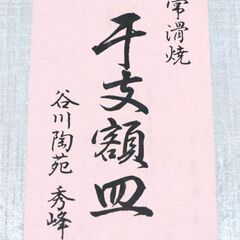 常滑焼
干支額皿
谷川陶苑 秀峰